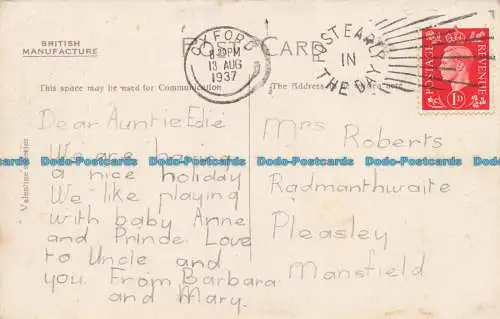 BRITISH
MANUFACTURE
POST CARD
OXFORD
PM
13 AUG
1937
POST EARLY
IN
THE DAY
POSTAGE
REVENUE
1D
This space may be used for Communication
The Address
here
Valentine
Dear Auntie Edie
We are having
a nice holiday
We like playing
with baby Anne
and Prince. Love
to Uncle and
you. From Barbara
and Mary.
Mrs Roberts
Radmanthwaite
Pleasley
Mansfield
Dodo-Postcards Dodo-Postcards Dodo-Postcards Dodo-Postcards
Dodo-Postcards Dodo-Postcards Dodo-Postcards Dodo-Postcards